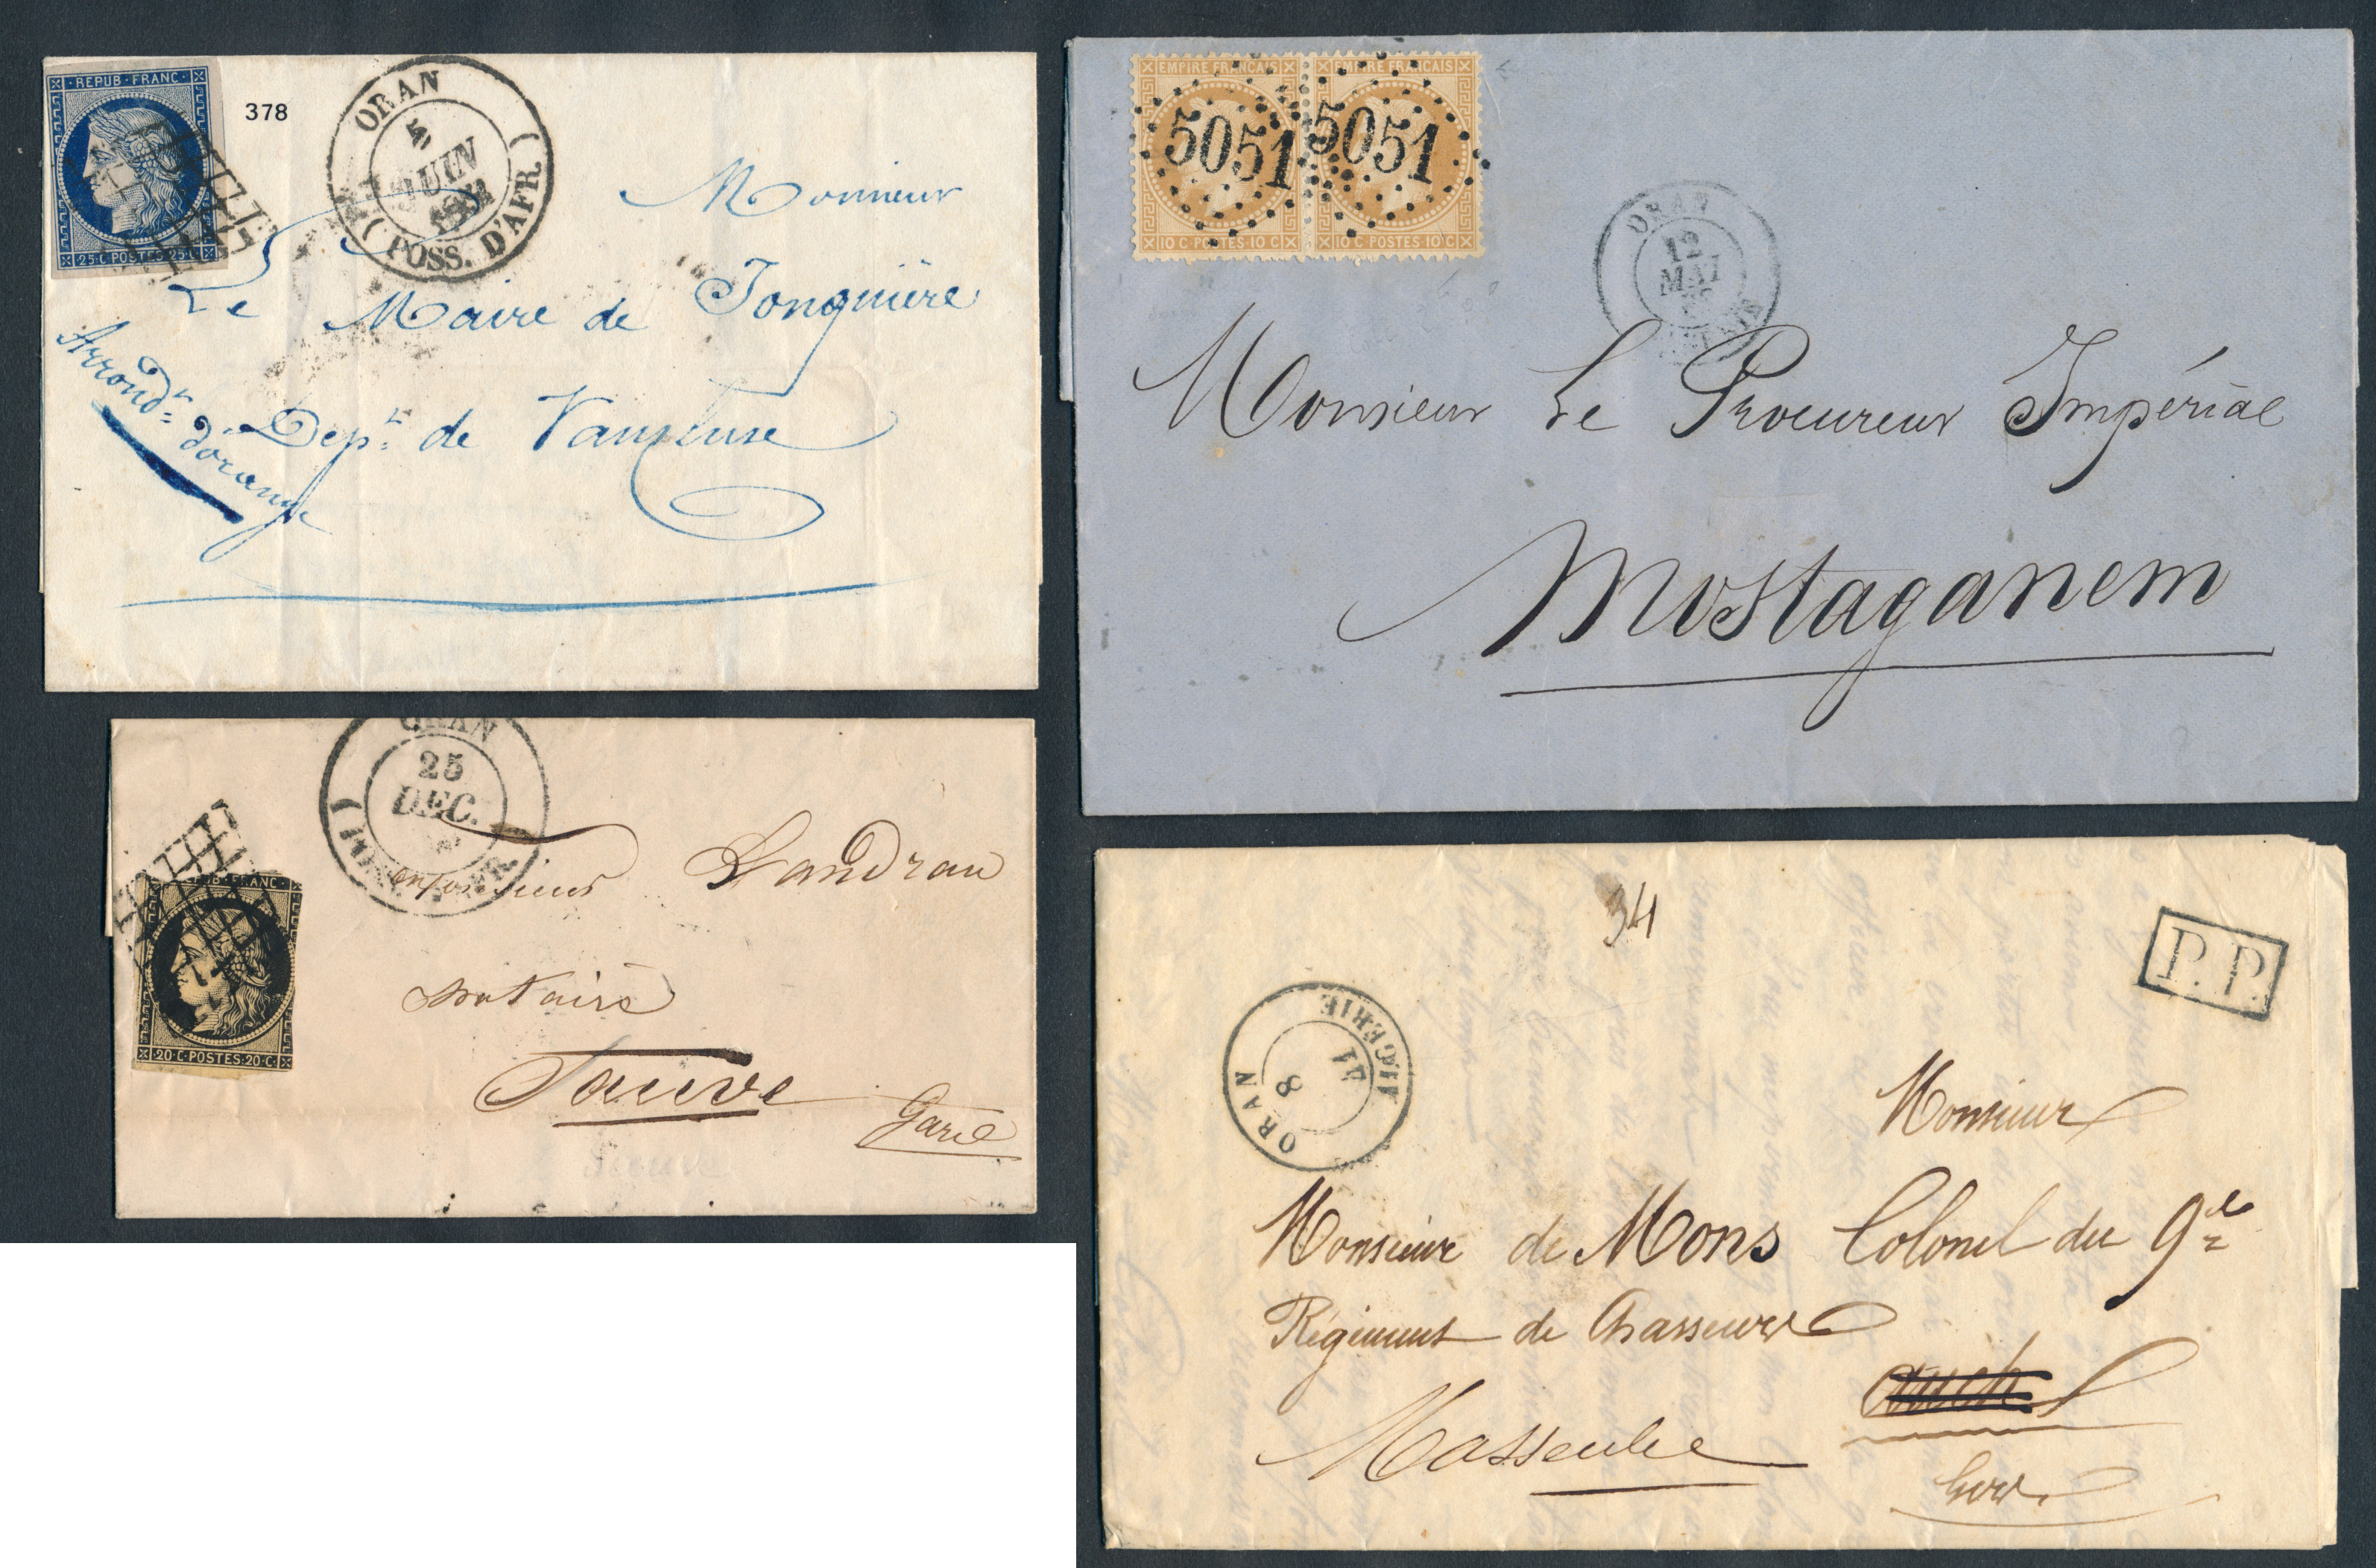 REPUB·FRANC·
25·C·POSTES·25·C
378
ORAN
5
JUIN
(POSS. D'AFR.)
Monsieur
Le Maire de Jonquière
Dept de Vaucluse
Arrondt d'orange
EMPIRE FRANCAIS EMPIRE FRANCAIS
5051 5051
10 C POSTES 10 C 10 C POSTES 10 C
ORAN
12
MAI
Monsieur Le Procureur Impérial
Mostaganem
REPUB·FRANC·
20·C·POSTES·20·C
ORAN
25
DEC.
Monsieur Landrau
notaire
Sauve
Gard
94
P.P.
ORAN
ALGERIE
11
8
Monsieur
Monsieur de Mons Colonel du 9e
Régiment de Chasseurs
Auch
Masseube
Gers